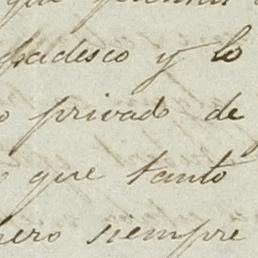 que
padesco y lo
o privado de
que tanto
pero siempre